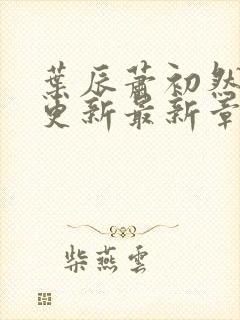 葉辰蕭初然
更新最新章
柴燕雲